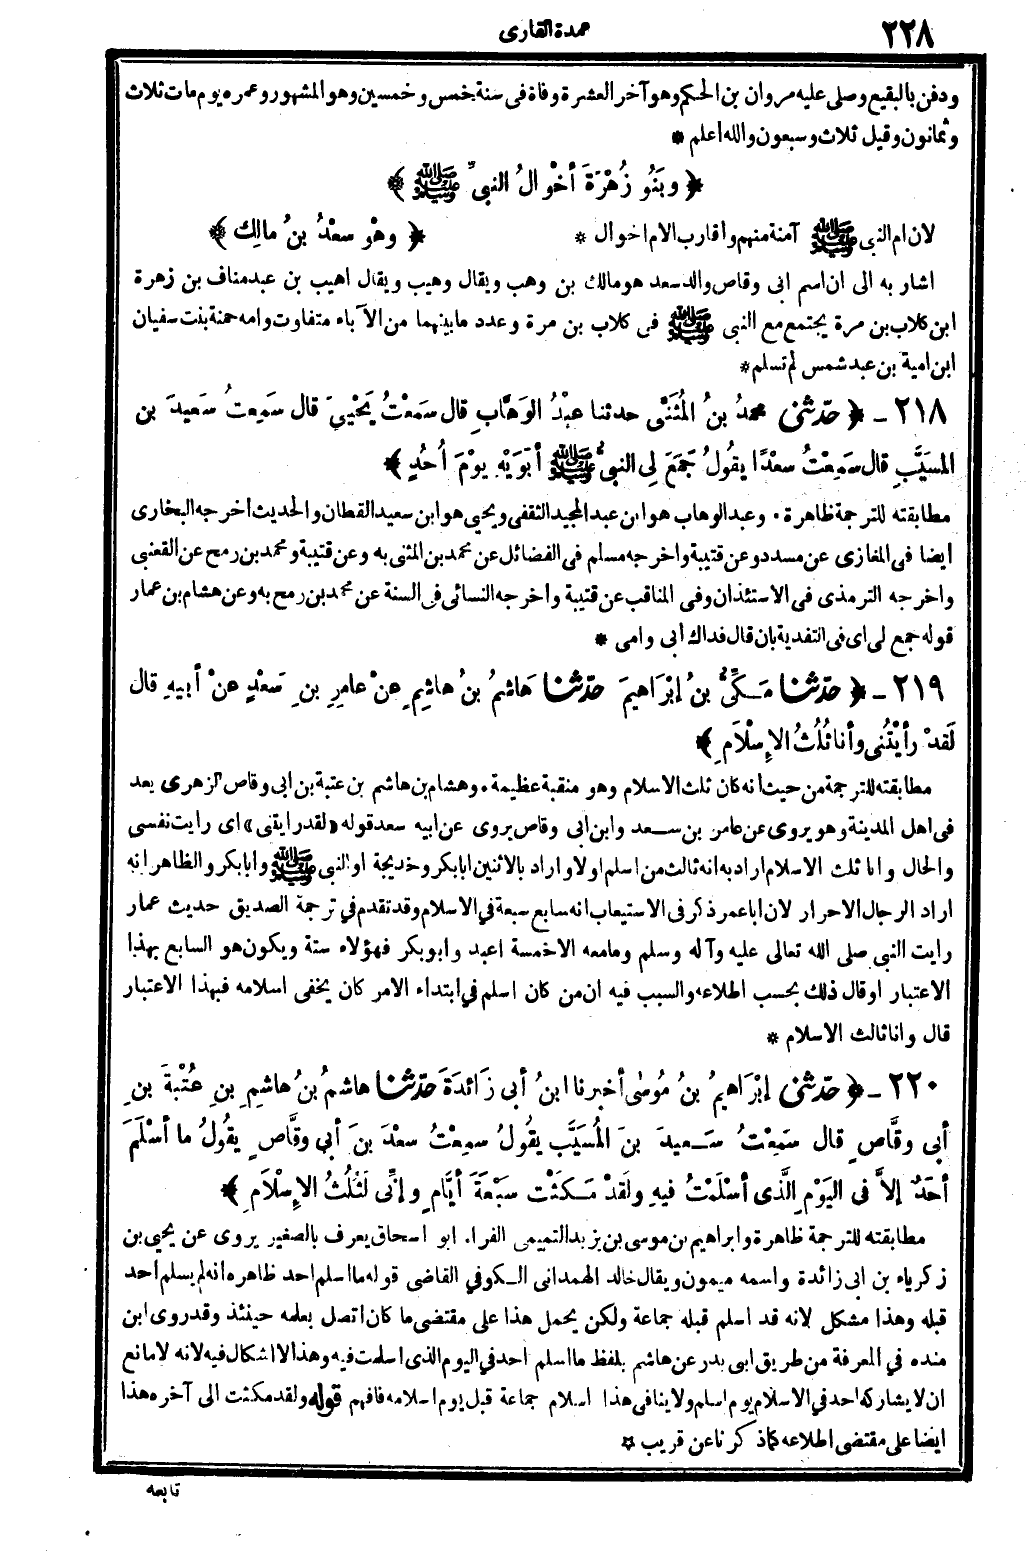 ٢٢٨
عمدة القارى
ودفن بالبقيع وصلى عليه مروان بن الحكم وهو آخر العشرة وفاة فى سنة خمس وخمسين وهو المشهور وعمره يوم مات ثلاث
وثمانون وقيل ثلاث وسبعون والله أعلم *
﴿ وبَنُو زُهْرَةَ أخْوالُ النبيِّ ﷺ ﴾
لان ام النبى ﷺ آمنة منهم وأقارب الام اخوال * ﴿ وهْوَ سعْدُ بنُ مالِك ﴾
اشار به الى ان اسم ابى وقاص والد سعد هو مالك بن وهب ويقال وهيب ويقال اهيب بن عبد مناف بن زهرة
ابن كلاب بن مرة يجتمع مع النبى ﷺ فى كلاب بن مرة وعدد ما بينهما من الآباء متفاوت وامه حمنة بنت سفيان
ابن امية بن عبد شمس لم تسلم *
٢١٨ - ﴿ حدّثنى محمدُ بنُ المُثَنَّى حدثنا عبْدُ الوَهَّابِ قال سَمعْتُ يَحْييَ قال سَمِعتُ سَعيدَ بن
المسَيَّبِ قال سَمِعْتُ سعْدًا يقُولُ جَمَعَ لِى النبىُّ ﷺ أبَوَيْهِ يوْمَ اُحُدٍ ﴾
مطابقته للترجمة ظاهرة. وعبد الوهاب هو ابن عبد المجيد الثقفى ويحيى هو ابن سعيد القطان والحديث أخرجه البخارى
أيضا فى المغازى عن مسدد وعن قتيبة واخرجه مسلم فى الفضائل عن محمد بن المثنى به وعن قتيبة ومحمد بن رمح عن القعنبى
واخرجه الترمذى فى الاستئذان وفى المناقب عن قتيبة واخرجه النسائى فى السنة عن محمد بن رمح به وعن هشام بن عمار
قوله جمع لى اى فى التفدية بان قال فداك أبى وامى *
٢١٩ - ﴿ حدّثنا مَكِّىُّ بنُ إبْرَاهيمَ حدّثنا هَاشمُ بنُ هاشِمٍ عنْ عامِرِ بنِ سَعْدٍ عنْ أبيهِ قال
لَقدْ رأيْتُنى وأنا ثُلُثُ الإسْلاَمِ ﴾
مطابقته للترجمة من حيث انه كان ثلث الاسلام وهو منقبة عظيمة. وهشام بن هاشم بن عتبة بن ابى وقاص الزهرى يعد
فى اهل المدينة وهو يروى عن عامر بن سعد وابن ابى وقاص يروى عن ابيه سعد قوله «لقد رايتنى» اى رايت نفسى
والحال وانا ثلث الاسلام اراد به انه ثالث من اسلم اولا واراد بالاثنين ابا بكر وخديجة او النبى ﷺ وابا بكر والظاهر انه
اراد الرجال الاحرار لان ابا عمر ذكر فى الاستيعاب انه سابع سبعة فى الاسلام وقد تقدم في ترجمة الصديق حديث عمار
رايت النبى صلى الله تعالى عليه وآله وسلم وما معه الا خمسة اعبد وابو بكر فهؤلاء ستة ويكون هو السابع بهذا
الاعتبار او قال ذلك بحسب اطلاعه والسبب فيه ان من كان اسلم فى ابتداء الامر كان يخفى اسلامه فبهذا الاعتبار
قال وانا ثالث الاسلام *
٢٢٠ - ﴿ حدّثنى إبْرَاهيمُ بنُ مُوسَى أخبرنا ابنُ أبى زَائدَةَ حدّثنا هاشمُ بنُ هاشِمِ بنِ عُتْبَةَ بنِ
أبى وقَّاصٍ قال سَمعْتُ سَعيدَ بنَ المُسَيَّب يقُولُ سمِعْتُ سعْدَ بنَ أبى وقَّاصٍ يقُولُ ما أسْلَمَ
أحَدٌ إلاَّ فى اليَوْمِ الَّذى أسْلَمْتُ فيهِ ولقَدْ مَكَثْت سَبْعَةَ أيَّامٍ وإنِّى لَثُلُثُ الإسْلاَمِ ﴾
مطابقته للترجمة ظاهرة وابراهيم بن موسى بن يزيد التميمى الفراء ابو اسحاق يعرف بالصغير يروى عن يحيى بن
زكرياء بن ابى زائدة واسمه ميمون ويقال خالد الهمدانى الكوفي القاضى قوله ما اسلم احد ظاهره انه لم يسلم احد
قبله وهذا مشكل لانه قد اسلم قبله جماعة ولكن يحمل هذا على مقتضى ما كان اتصل بعلمه حينئذ وقد روى ابن
منده في المعرفة من طريق ابى بدر عن هاشم بلفظ ما اسلم احد في اليوم الذى اسلمت فيه وهذا لا اشكال فيه لانه لا مانع
ان لا يشاركه احد في الاسلام يوم اسلم ولا ينافى هذا اسلام جماعة قبل يوم اسلامه فافهم قوله ولقد مكثت الى آخره هذا
ايضا على مقتضى اطلاعه كما ذكرنا عن قريب *
تابعه